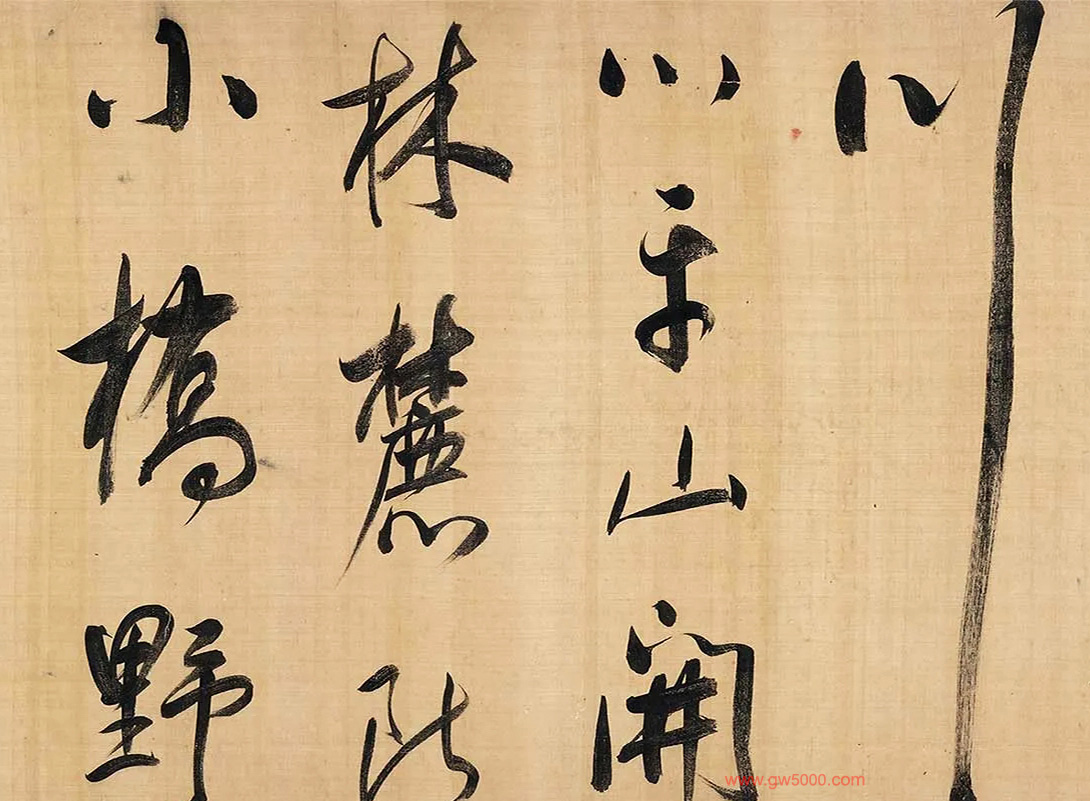 川
川平山開
林麓斷
小橋野
www.gw5000.com